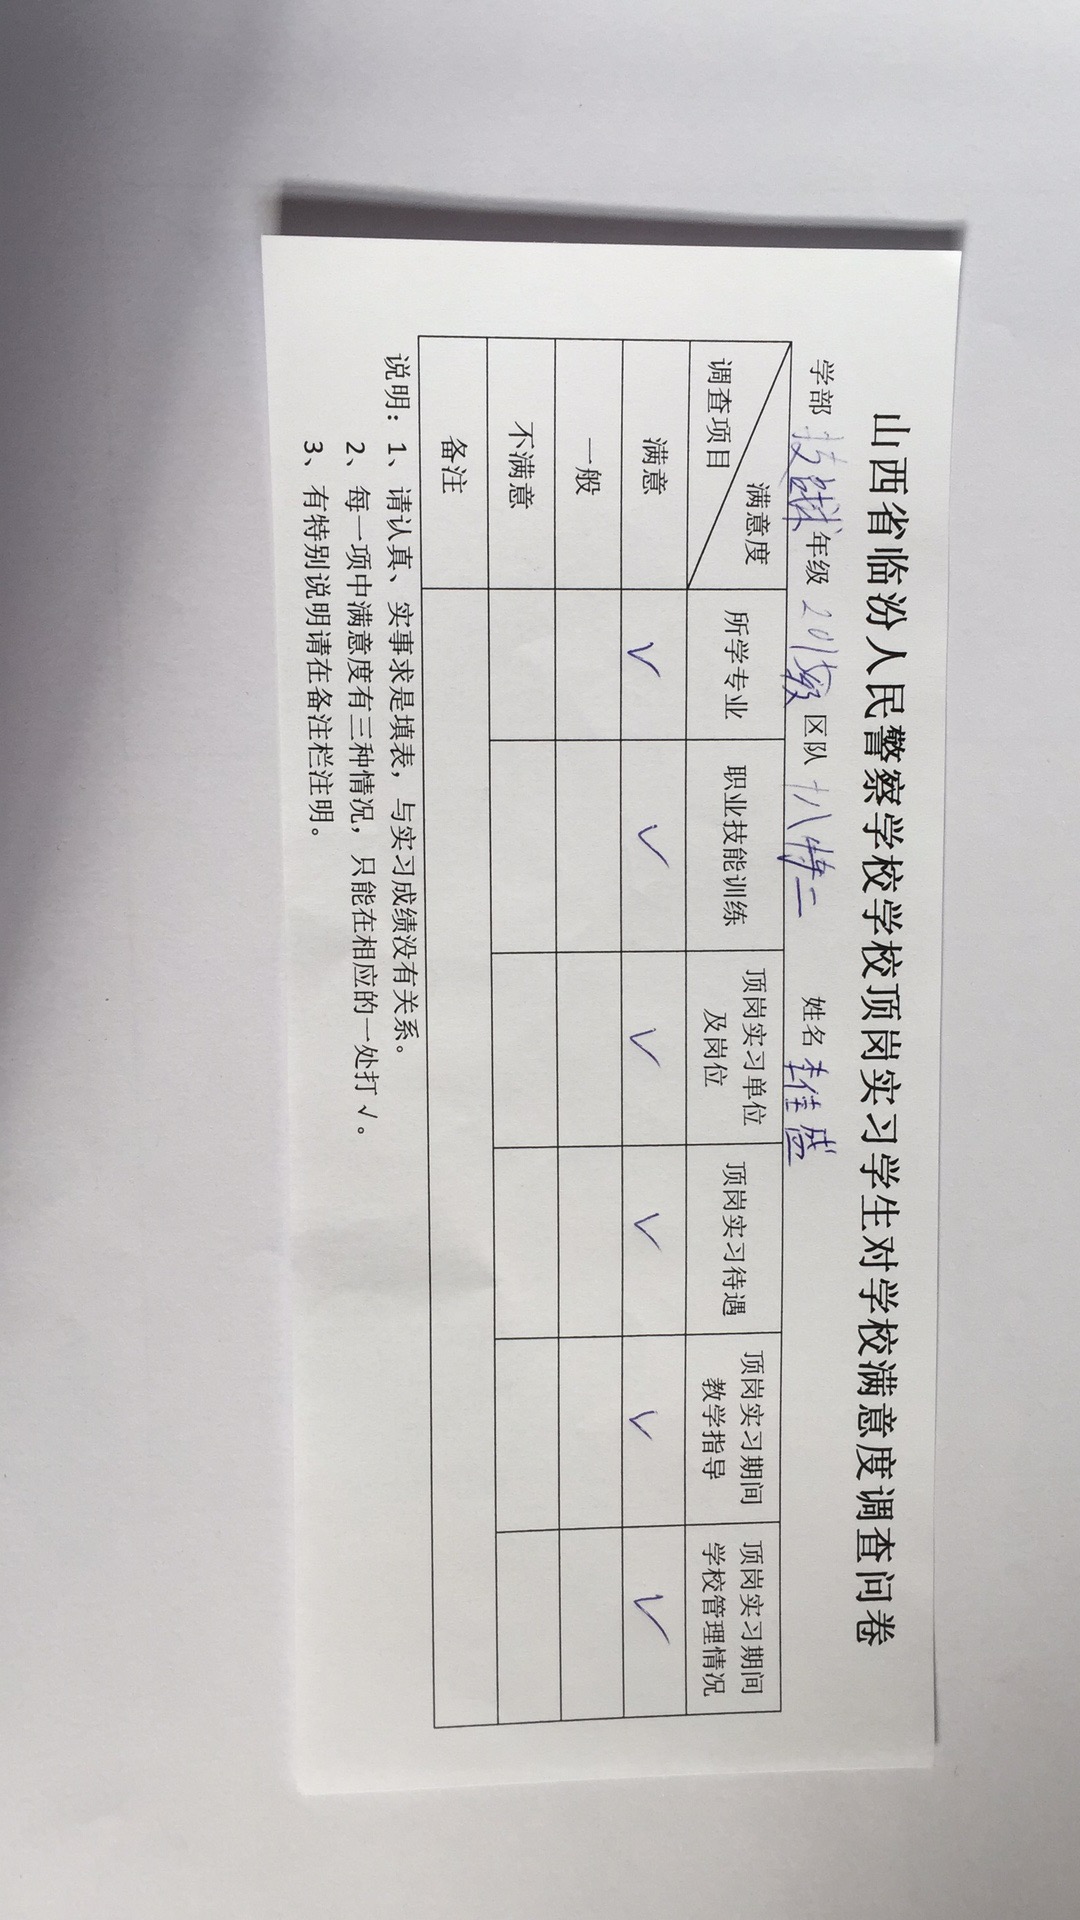 山西省临汾人民警察学校学校顶岗实习学生对学校满意度调查问卷
学部 技战术 年级 区队 十八特二 姓名 李佳盛
满意度
调查项目 所学专业 职业技能训练 顶岗实习单位及岗位 顶岗实习待遇 顶岗实习期间教学指导 顶岗实习期间学校管理情况
满意 ✓ ✓ ✓ ✓ ✓ ✓
一般
不满意
备注
说明：1、请认真、实事求是填表，与实习成绩没有关系。
2、每一项中满意度有三种情况，只能在相应的一处打√。
3、有特别说明请在备注栏注明。